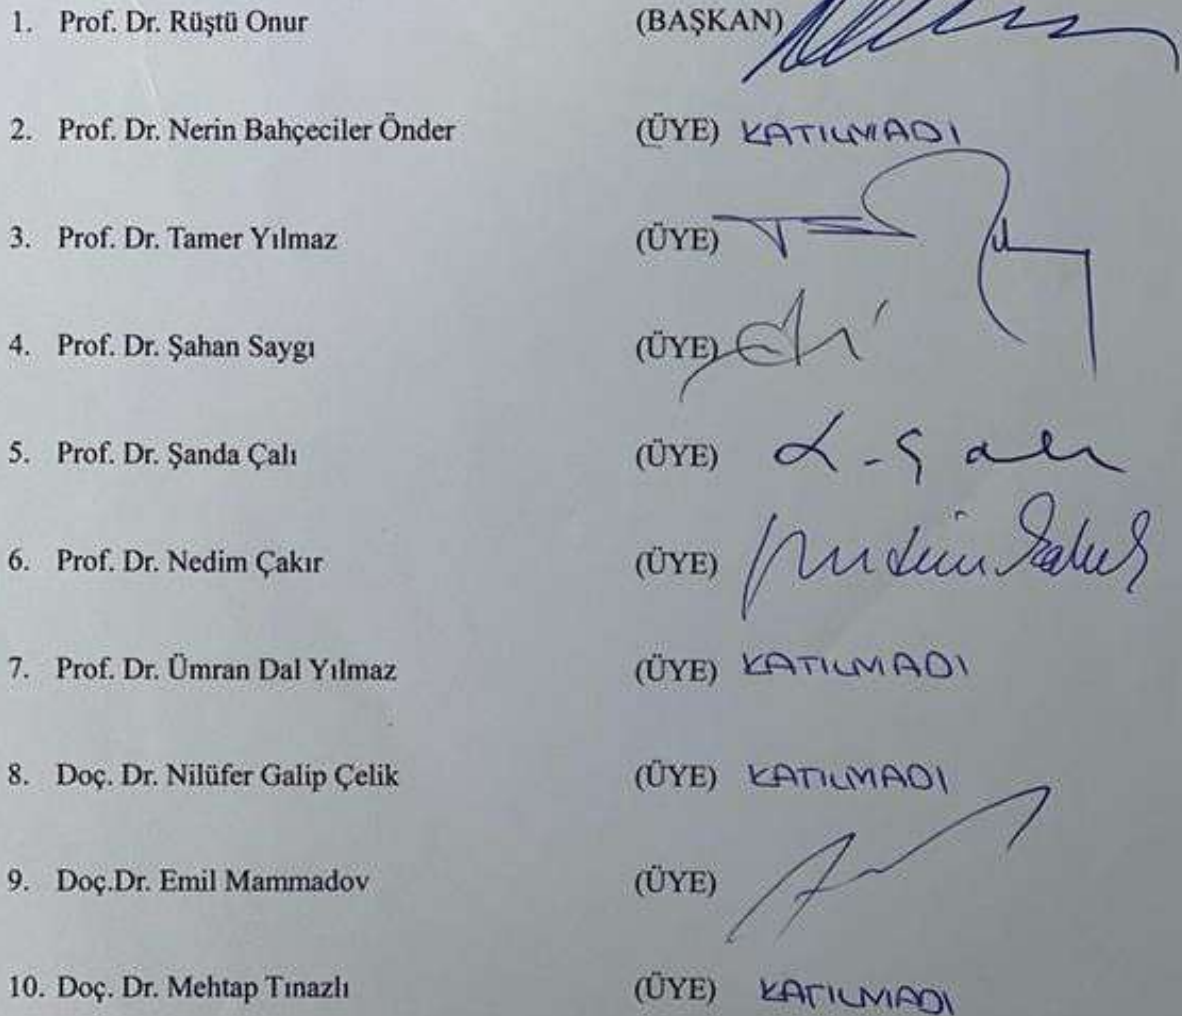 1. Prof. Dr. Rüştü Onur (BAŞKAN)
2. Prof. Dr. Nerin Bahçeciler Önder (ÜYE) KATILMADI
3. Prof. Dr. Tamer Yılmaz (ÜYE)
4. Prof. Dr. Şahan Saygı (ÜYE)
5. Prof. Dr. Şanda Çalı (ÜYE)
6. Prof. Dr. Nedim Çakır (ÜYE)
7. Prof. Dr. Ümran Dal Yılmaz (ÜYE) KATILMADI
8. Doç. Dr. Nilüfer Galip Çelik (ÜYE) KATILMADI
9. Doç.Dr. Emil Mammadov (ÜYE)
10. Doç. Dr. Mehtap Tınazlı (ÜYE) KATILMADI